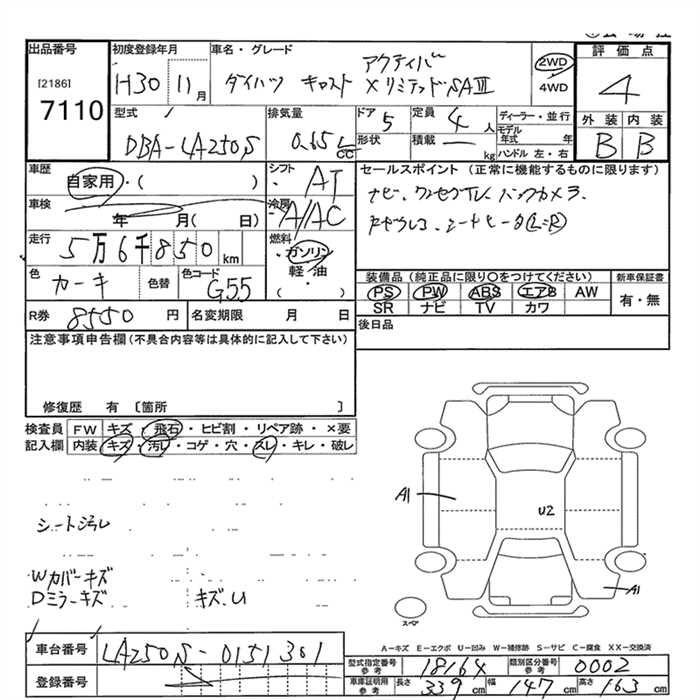 出品番号
[2186]
7110
初度登録年月
H30 11月
車名・グレード
アクティバ
ダイハツ キャスト XリミテッドSAⅢ
2WD
4WD
評価点
4
型式
DBA-LA250S
排気量
0.65L
CC
ドア
5
形状
定員
4人
積載
kg
ディーラー・並行
モデル年式 年
ハンドル 左・右
外装 内装
B B
車歴
自家用・( )
シフト
AT
車検
年 月( 日)
冷房
A/AC
走行
5万6千850km
燃料
ガソリン
軽・油
( )
色
カーキ
色替
色コード
G55
セールスポイント (正常に機能するものに限ります)
ナビ.ワンセグTV.バックカメラ.
ドラレコ.シートヒータ(L=R)
装備品(純正品に限り○をつけてください)
PS PW ABS エアB AW
SR ナビ TV カワ
新車保証書
有・無
R券 8550円
名変期限 月 日
後日品
注意事項申告欄(不具合内容等は具体的に記入して下さい)
修復歴 有 [箇所 ]
検査員記入欄
FW キズ・飛石・ヒビ割・リペア跡・×要
内装 キズ・汚レ・コゲ・穴・スレ・キレ・破レ
シート汚レ
Wカバーキズ
Dミラーキズ
キズ.U
A1
U2
A1
スペア
A-キズ E-エクボ U-凹み W-補修跡 S-サビ C-腐食 XX-交換済
車台番号
LA250S-0151301
登録番号
型式指定番号
参考
18164
類別区分番号
参考
0002
車庫証明用
参考
長さ 339cm 幅 147cm 高さ 163cm